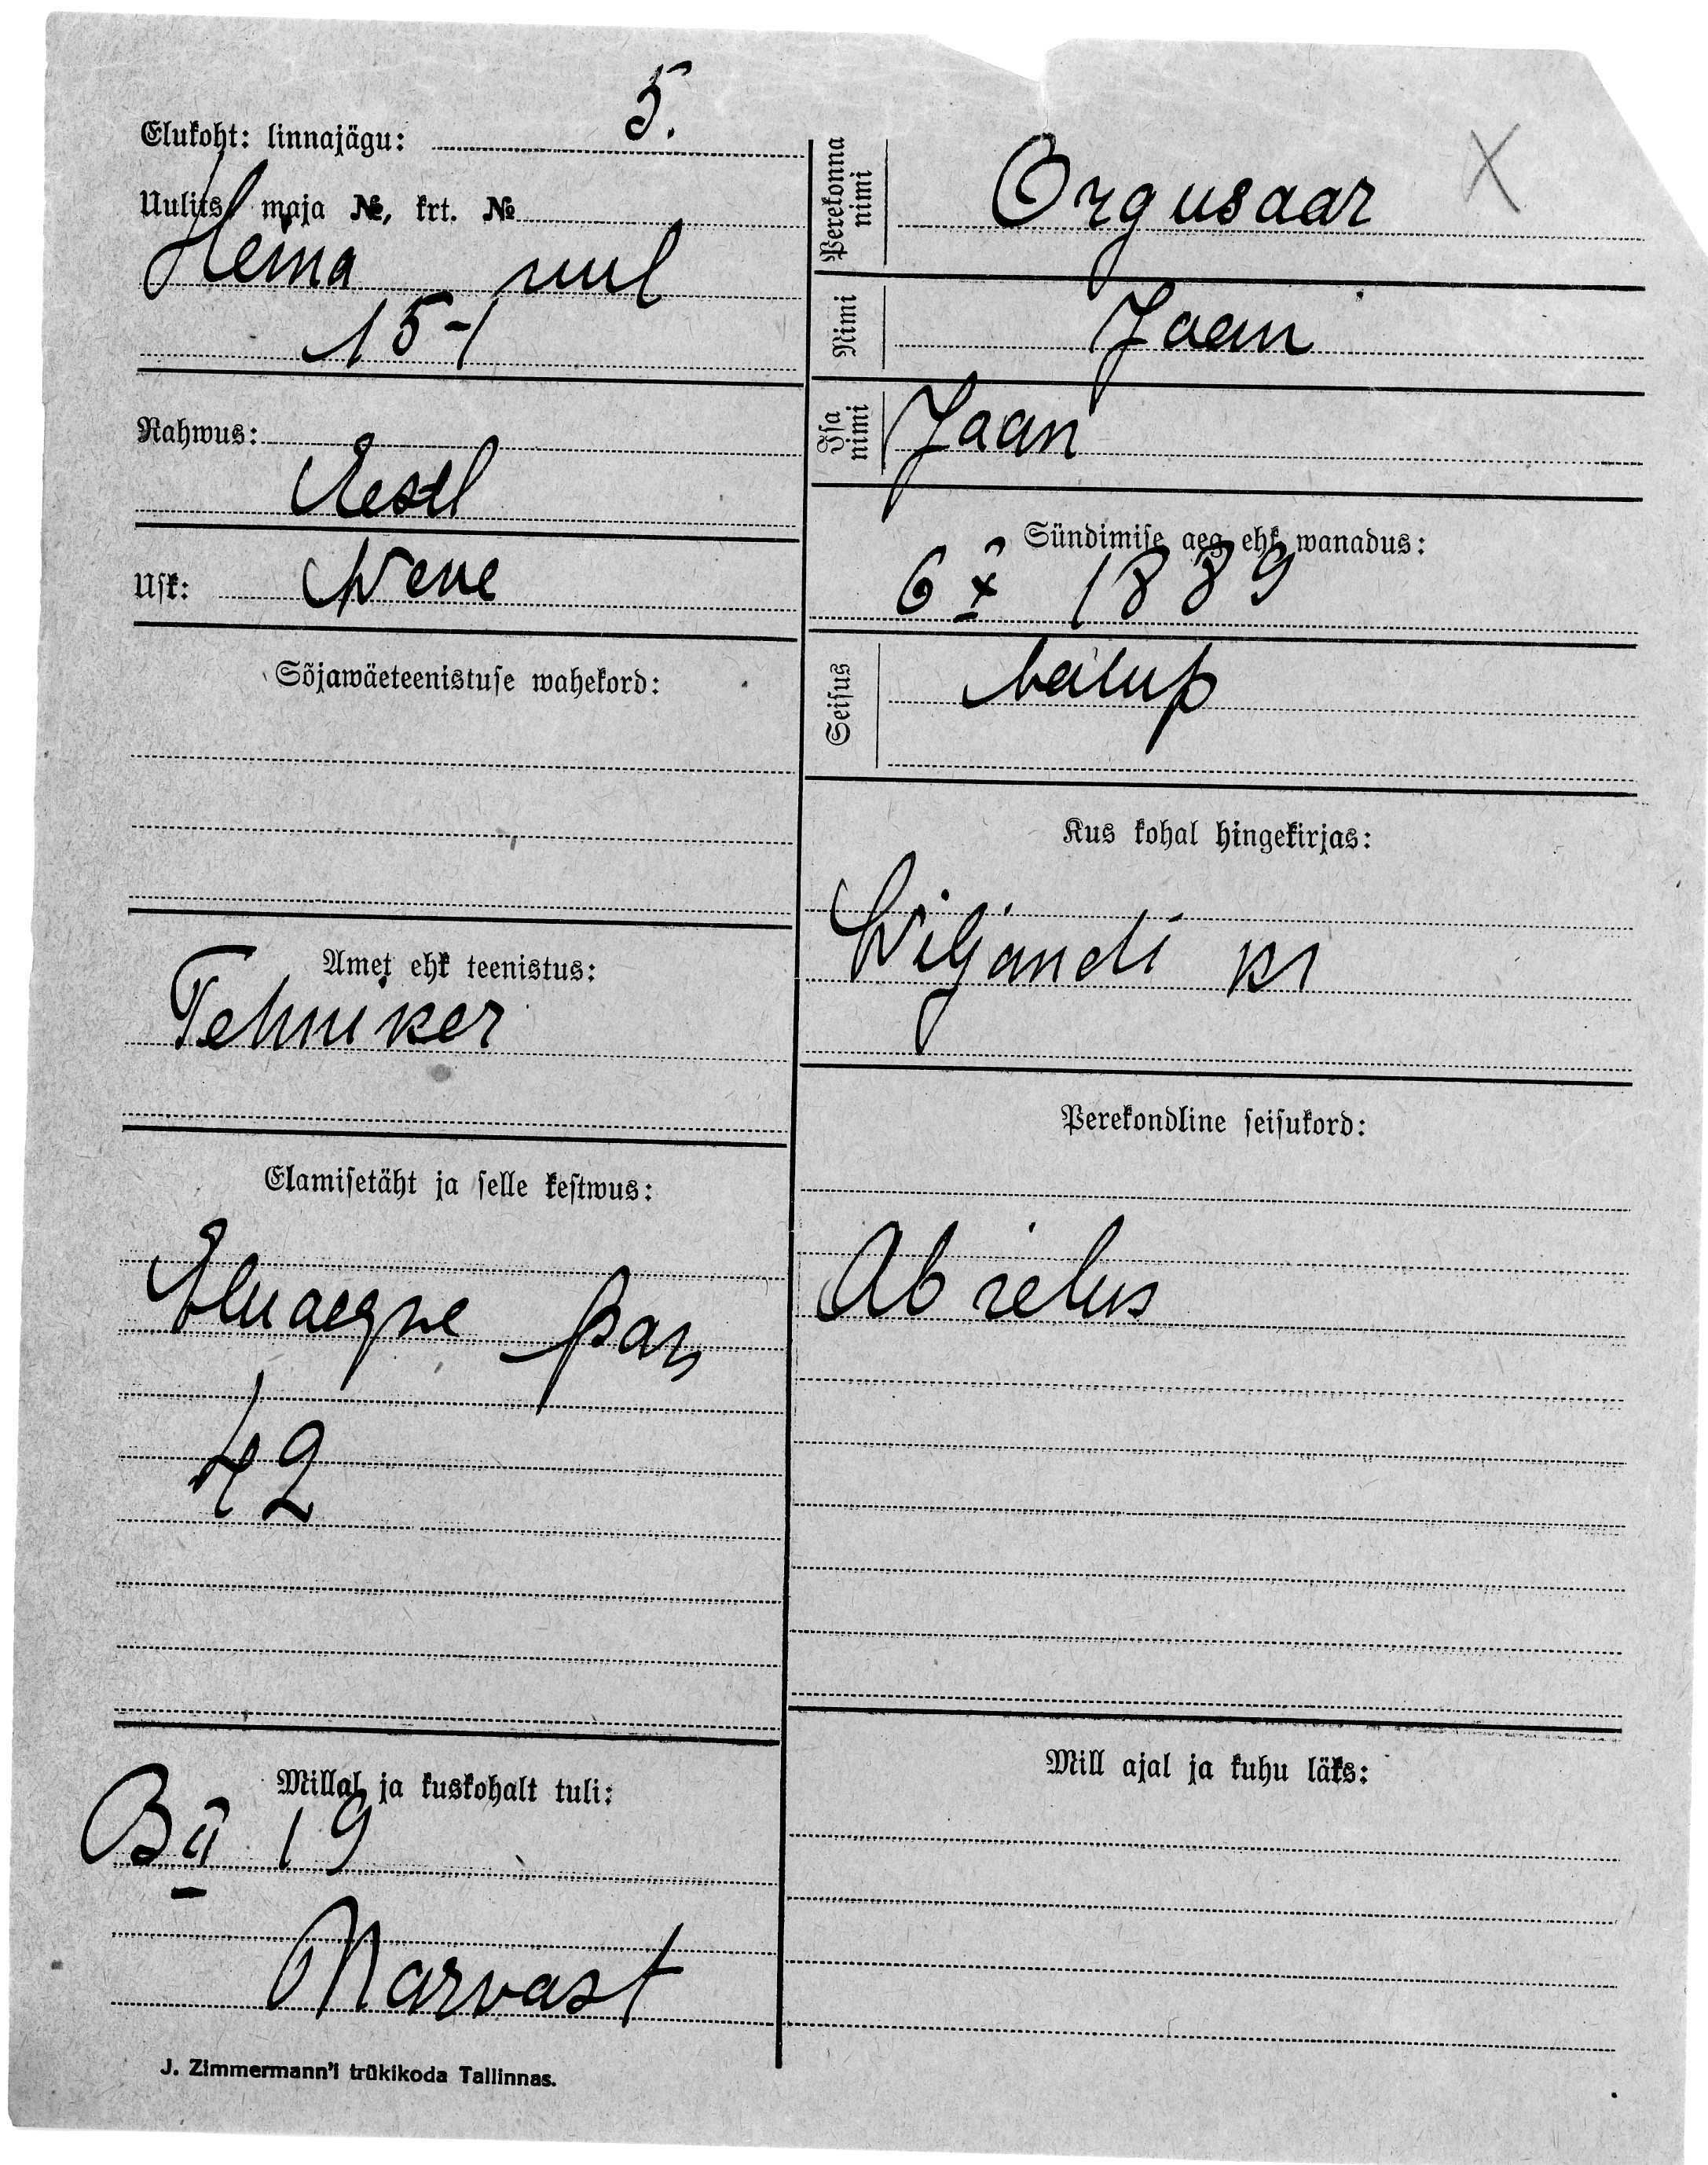 Elukoht: linnajägu: 5.
Uulits, maja №, krt. №
Heina uul
15-1
Rahwus:
Eestl
Usk: Wene
Sõjawäeteenistuse wahekord:
Amet ehk teenistus:
Tehniker
Elamisetäht ja selle kestwus:
Eluaegne pas
42
Millal ja kuskohalt tuli:
19
Narvast
J. Zimmermann'i trükikoda Tallinnas.
Perekonna nimi
Orgusaar X
Nimi
Jaan
Isa nimi
Jaan
Sündimise aeg ehk wanadus:
6 X 1889
Seisus
talup
Kus kohal hingekirjas:
Wiljandi kr
Perekondline seisukord:
Abielus
Mill ajal ja kuhu läks: